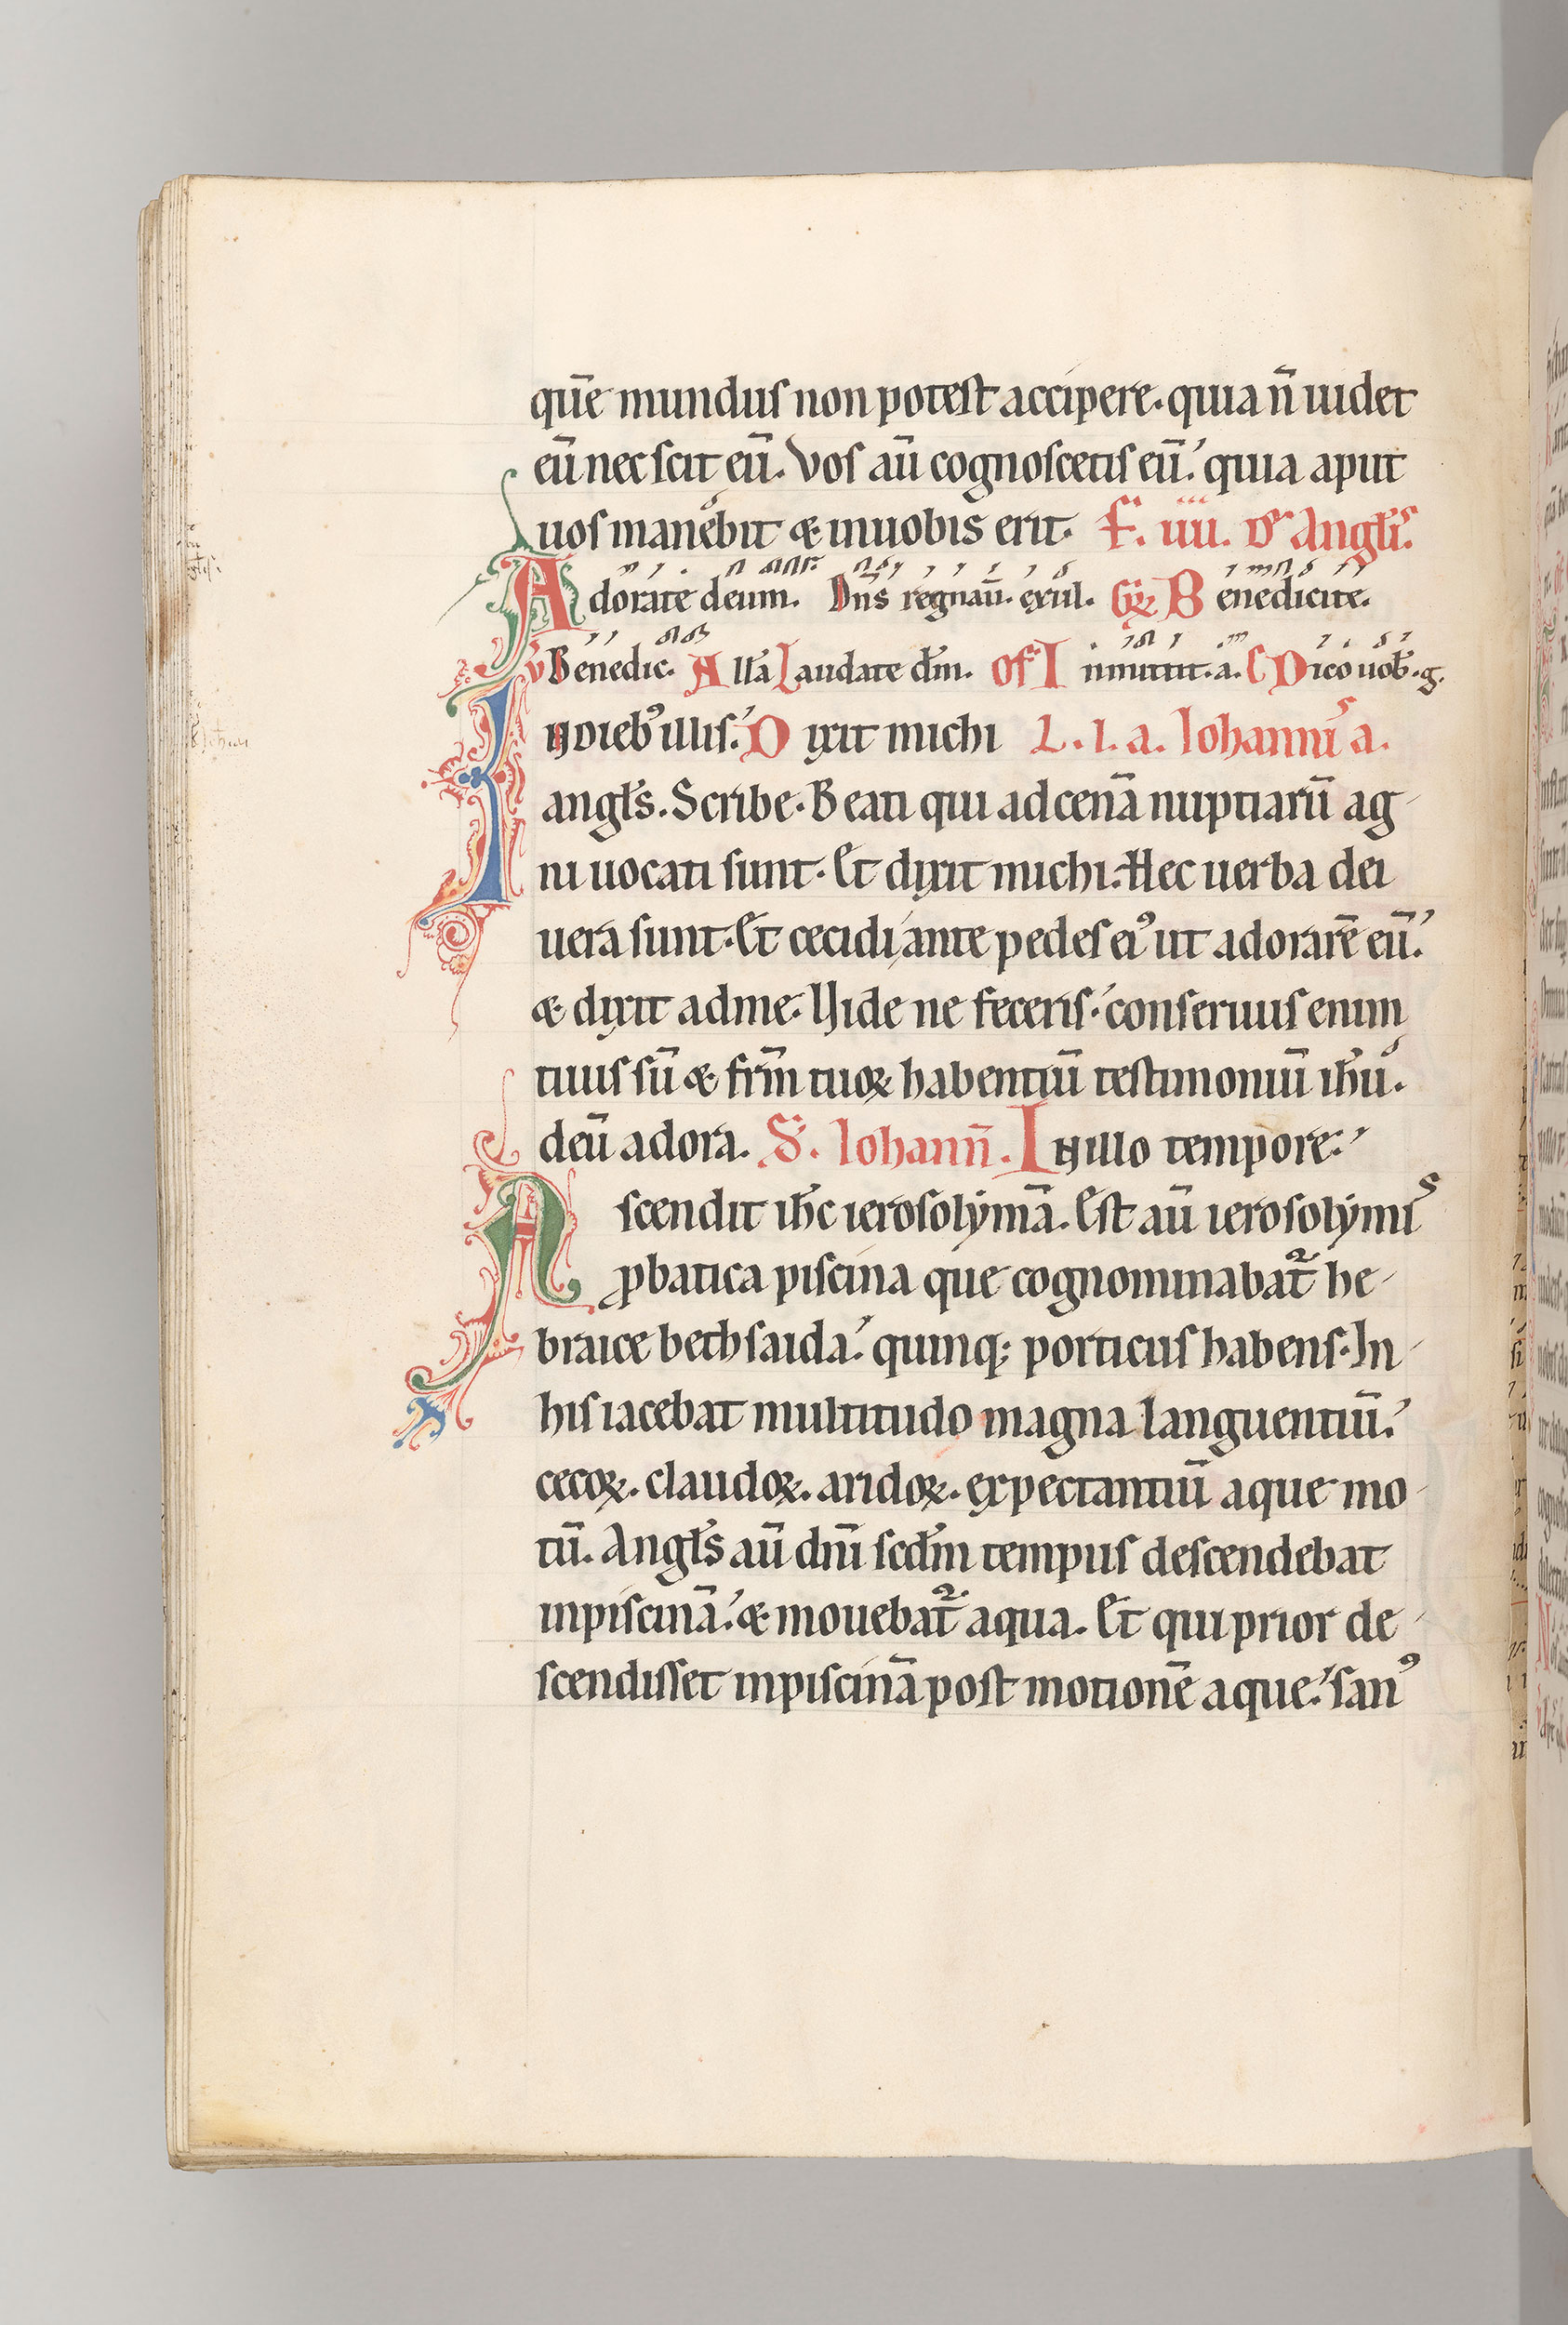 quē mundus non potest accipere. quia n̄ uidet
eū nec scit eū. Vos aū cognoscetis eū. quia aput
uos manebit & in uobis erit. F. iiii. de Angl̄is.
Adorate deum. Dn̄s regnauit. exul. Gr̄ Benedicite.
V Benedic. All̄a Laudate dm̄. Of Inmittit. a. C Dico uob̄. g.
In dieb᾽ illis. Dixit michi L. l. a. Iohannis a.
angl̄s. Scribe. Beati qui ad cenā nuptiarū ag
ni uocati sunt. Et dixit michi. Hec uerba dei
uera sunt. Et cecidi ante pedes ei᾽ ut adorarē eū.
& dixit ad me. Vide ne feceris. conseruus enim
tuus sū & frm̄ tuoꝝ habentiū testimoniū ih̄u.
deū adora. S. Iohann̄. In illo tempore.
Ascendit ih̄c ierosolymā. Est aū ierosolymis
ꝓbatica piscina que cognominabat᷑ he
braice bethsaida. quinq; porticus habens. In
his iacebat multitudo magna languentiū.
cecoꝝ. claudoꝝ. aridoꝝ. expectantiū aque mo
tū. Angl̄s aū dn̄i scd̄m tempus descendebat
in piscinā. & mouebat᷑ aqua. Et qui prior de
scendisset in piscinā post motionē aque. san᾽